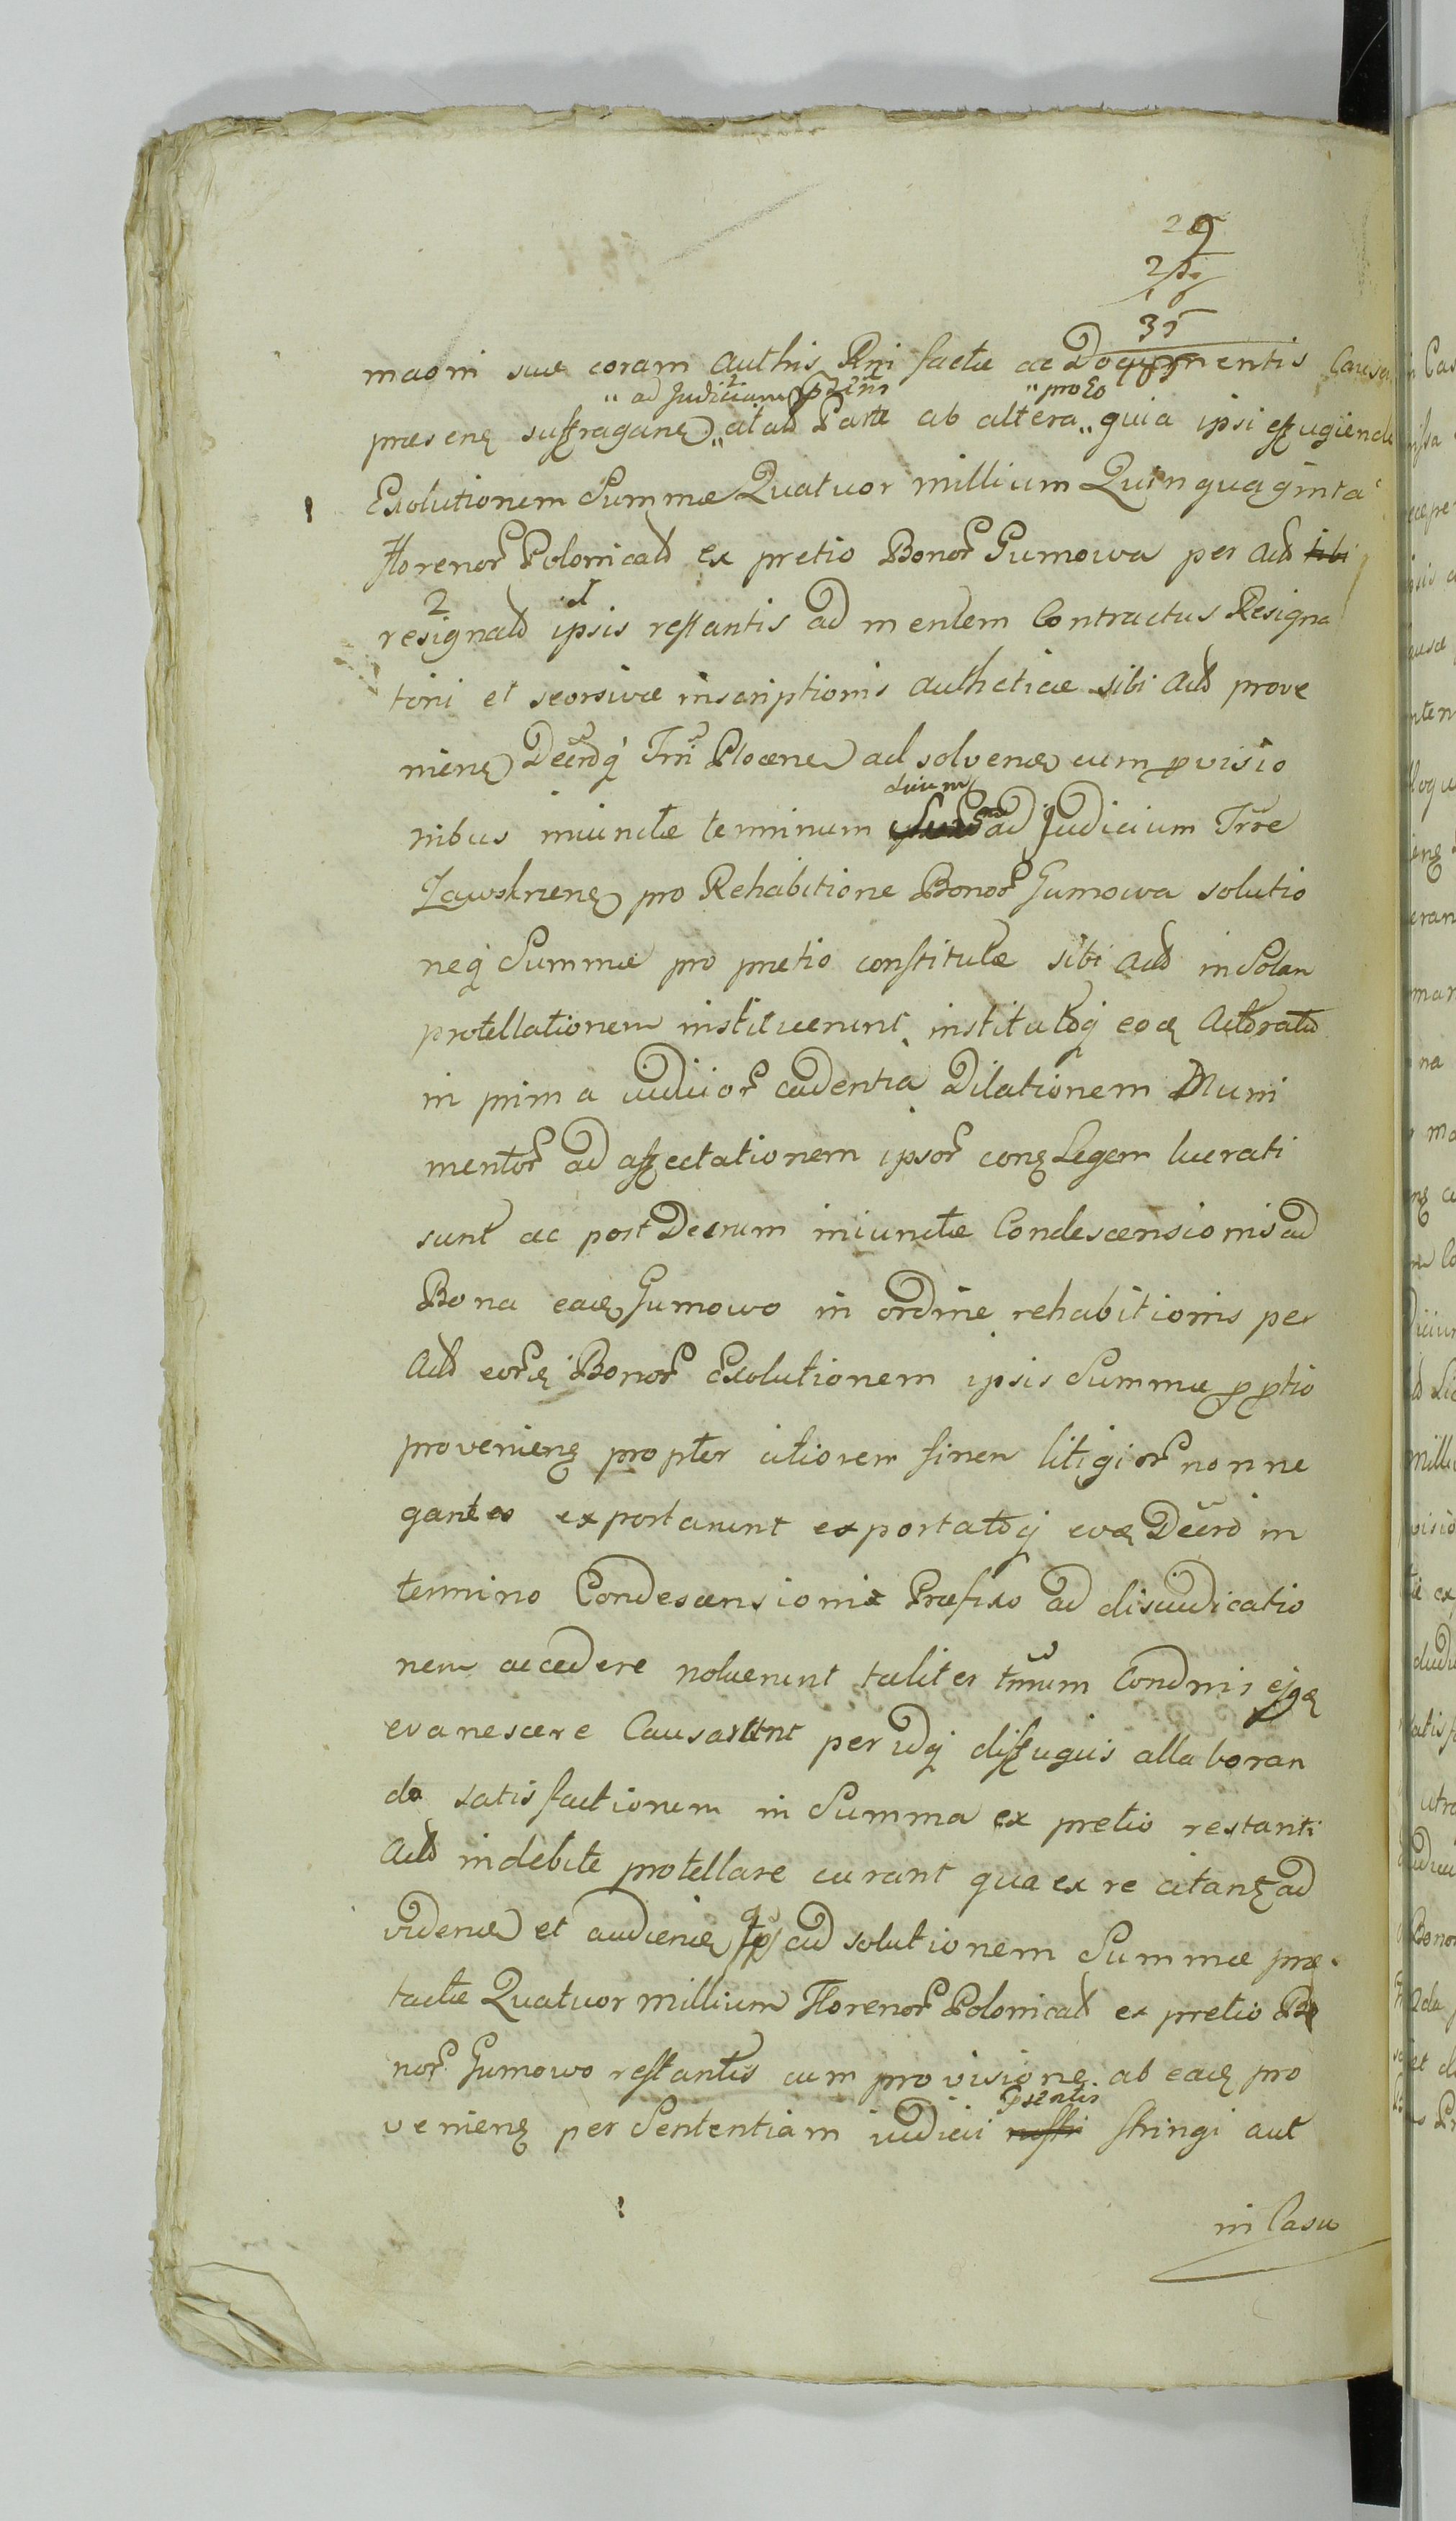 29
35
maoni suæ coram Authis Rni factæ ac Documentis Causæ
„ ad Judicium „ pro Eo
præsenȩ suffraganȩ „ citad Parte ab altera „ quia ipsi effugiendo
Exolutionem Summæ Quatuor millium Quinquaginta
Florenor Polonicad ex pretio Bonor Gumowa per Actd sibi
2 1
resignatd ipsis restantis ad mentem Contractus Resigna
toni et seorsivæ inscriptionis autheticæ sibi Actd prove
nienȩ Decrdq Trri Plocenȩ ad solvenȩ cum provisio
duum
nibus iniunctæ terminum ad Judicium Trræ
Zawskrnenȩ pro Rehabitione Bonor Gumowa solutio
neq Summæ pro pretio constitutæ sibi Actd in Solan
protellationem instituerunt institutoq eoȩ Actoratu
in prima iudicior cadentia Dilationem Muni
mentor ad affectationem ipsor conȩ Legem lucrati
sunt ac post Decrum iniunctæ Condescensionis ad
Bona eaȩ Gumowo in ordine rehabitionis per
Actd eorȩ Bonor Exolutionem ipsis Summæ p ptio
provenienȩ propter citiorem finem litigior non ne
gantes exportarunt exportatoq eoȩ Decrd in
termino Condescensionis Præfixo ad disiudicatio
nem accedere noluerunt taliter tmum Condnis ejȩ
evanescere Causarunt per idq diffugiis allaboran
do satisfactionem in Summa ex pretio restanti
Actd indebite protellare curant qua ex re citanȩ ad
videnȩ et audienȩ se ad solutionem Summæ præ
tactæ Quatuor millium Florenor Polonicad ex pretio Bo
nor Gumowo restantis cum provisionȩ ab eaȩ pro
psentis
venienȩ per Sententiam iudicii nostri stringi aut
in Casu